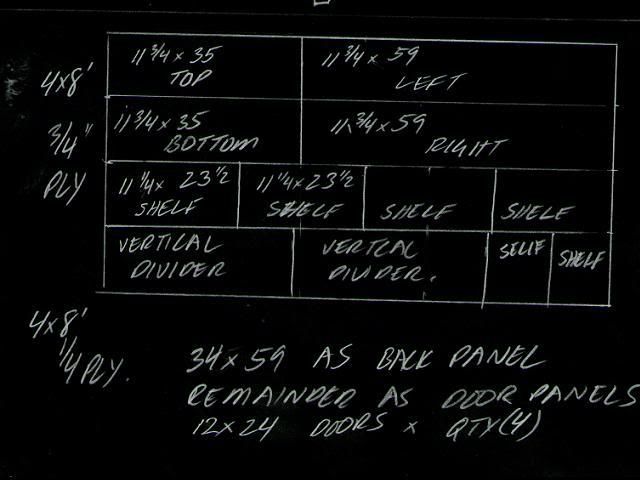 11 3/4 x 35
TOP
11 3/4 x 59
LEFT
4x8'
3/4"
PLY
11 3/4 x 35
BOTTOM
11 3/4 x 59
RIGHT
11 1/4 x 23 1/2
SHELF
11 1/4 x 23 1/2
SHELF
SHELF
SHELF
VERTICAL
DIVIDER
VERTICAL
DIVIDER.
SELIF
SHELF
4x8'
1/4 PLY.
34 x 59 AS BACK PANEL
REMAINDER AS DOOR PANELS
12x24 DOORS x QTY(4)